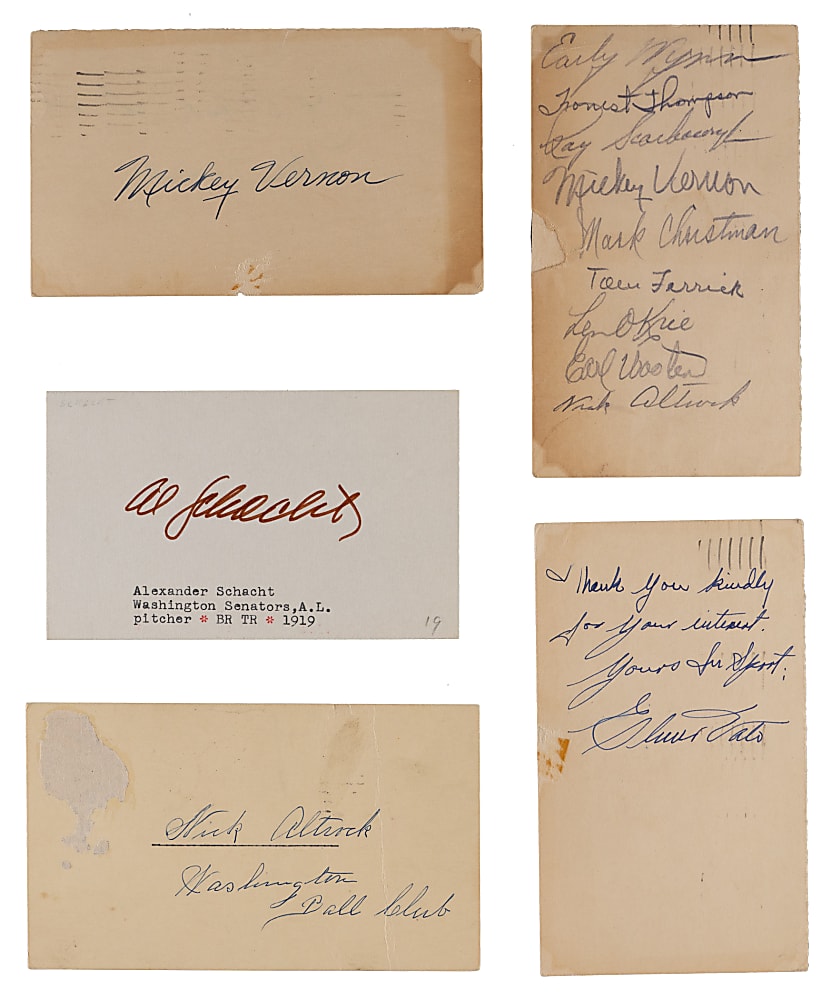 Mickey Vernon
Early Wynn
Forrest Thompson
Ray Scarborough
Mickey Vernon
Mark Christman
Tom Ferrick
Len Okrie
Earl Wooten
Nick Altrock
Al Schacht
Alexander Schacht
Washington Senators,A.L.
pitcher * BR TR * 1919
19
Thank you kindly
for your interest.
Yours In Sport;
Elmer
Nick Altrock
Washington
Ball Club